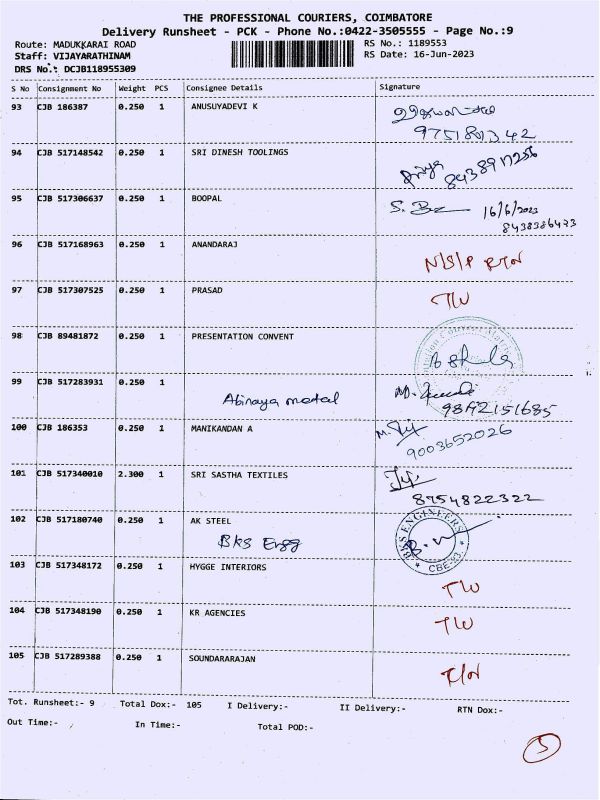 THE PROFESSIONAL COURIERS, COIMBATORE
Delivery Runsheet - PCK - Phone No.:0422-3505555 - Page No.:9
Route: MADUKKARAI ROAD RS No.: 1189553
Staff: VIJAYARATHINAM RS Date: 16-Jun-2023
DRS No.: DCJB118955309
S No Consignment No Weight PCS Consignee Details Signature
93 CJB 186387 0.250 1 ANUSUYADEVI K
94 CJB 517148542 0.250 1 SRI DINESH TOOLINGS
95 CJB 517306637 0.250 1 BOOPAL 16/6/2023
8438386473
96 CJB 517168963 0.250 1 ANANDARAJ N/S/P RTN
97 CJB 517307525 0.250 1 PRASAD
98 CJB 89481872 0.250 1 PRESENTATION CONVENT
99 CJB 517283931 0.250 1
Abinaya metal
100 CJB 186353 0.250 1 MANIKANDAN A
9003652026
101 CJB 517340010 2.300 1 SRI SASTHA TEXTILES
8754822322
102 CJB 517180740 0.250 1 AK STEEL BKS ENGINEERS
BKS Engg CBE-23
103 CJB 517348172 0.250 1 HYGGE INTERIORS
104 CJB 517348190 0.250 1 KR AGENCIES
105 CJB 517289388 0.250 1 SOUNDARARAJAN
Tot. Runsheet:- 9 Total Dox:- 105 I Delivery:- II Delivery:- RTN Dox:-
Out Time:- In Time:- Total POD:-